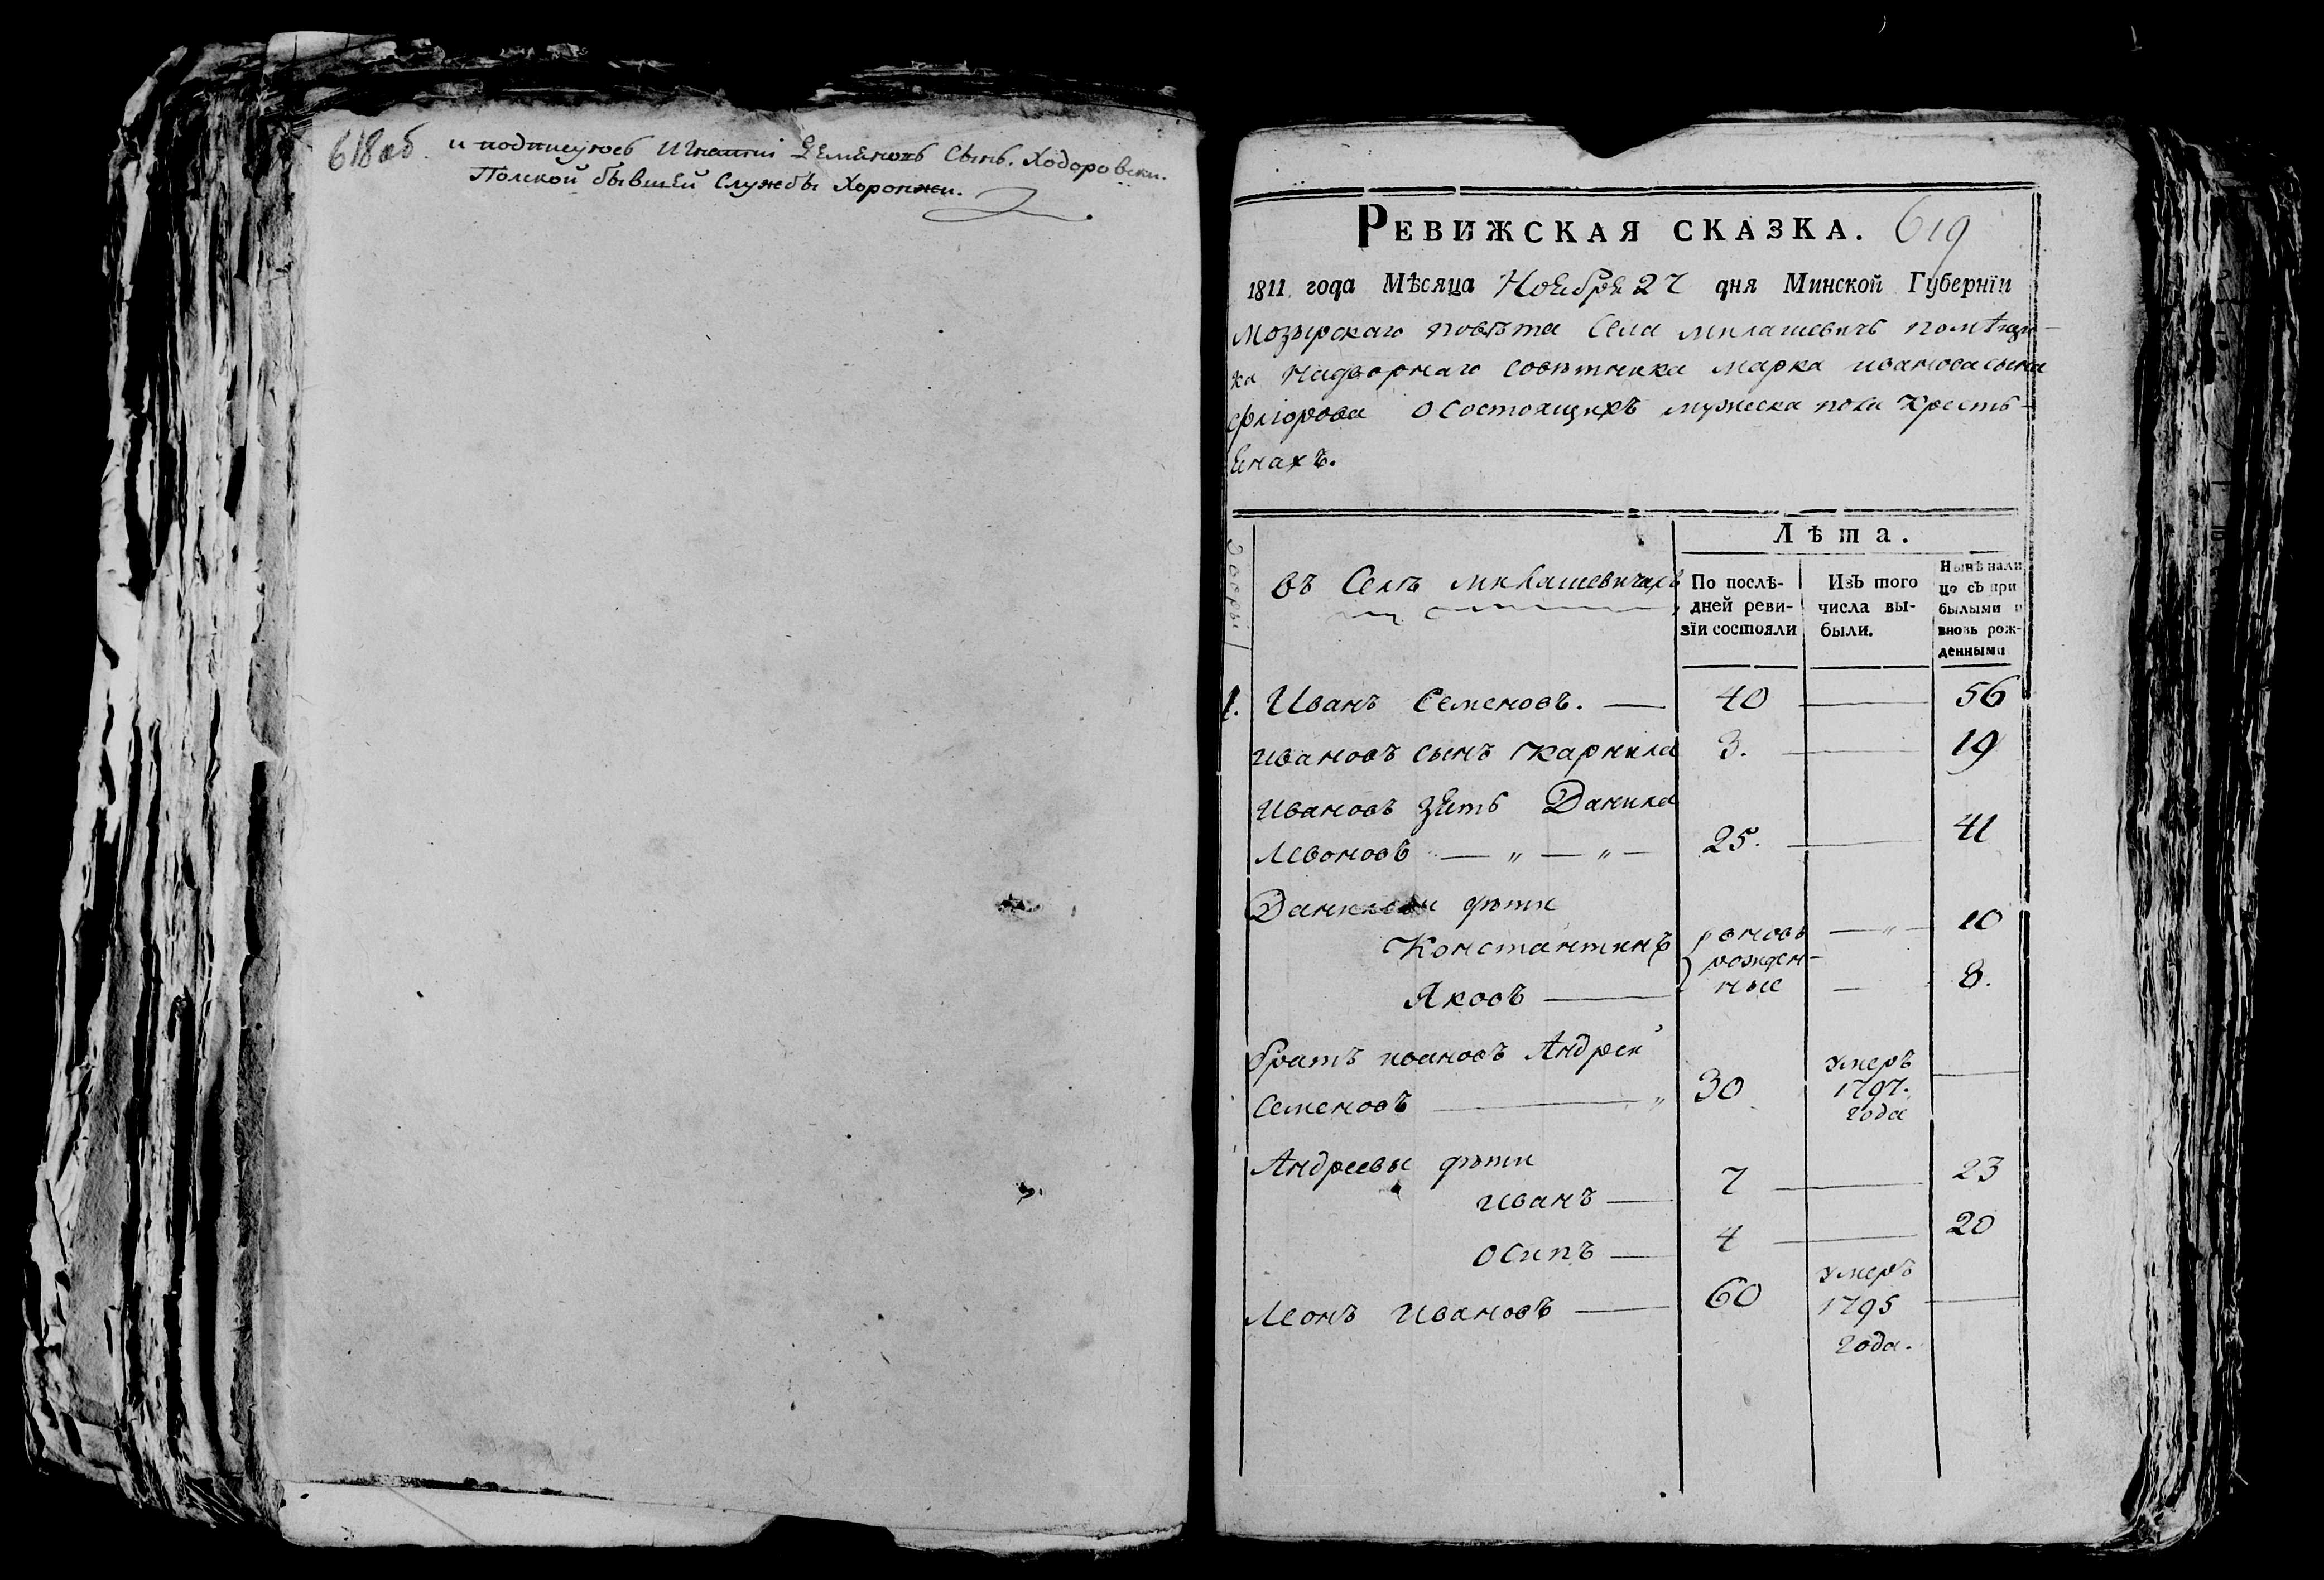 618об. и подписуюсь Игнатий Деменовъ Сынъ. Ходоровски.
Полской бывшей Службы Хоронжи.
РЕВИЖСКАЯ СКАЗКА. 619
1811 года Мѣсяца Ноября 27 дня Минской Губернїи
Мозырскаго повѣта Села Милашевичъ помѣщи-
ка Надворнаго Совѣтника Марка иванова сына
Флорова о состоящихъ мужеска пола кресть-
янахъ.
Лѣта.
Дворы
въ Селѣ Милашевичахъ
По послѣ-
дней реви-
зїи состояли
Изъ того
числа вы-
были.
Нынѣ нали
цо съ при
былыми и
вновь рож-
денными
1. Иванъ Семеновъ. — 40 — 56
Ивановъ сынъ Карнила 3. — 19
Ивановъ зять Данила
Левоновъ — „ — „ — 25. — 41
Даниловы дѣти
Константинъ вновь — „ — 10
рожден-
Яковъ — ные — 8.
братъ ивановъ Андрей
Семеновъ — „ 30 умеръ 1797. года —
Андреевы дѣти
иванъ — 7 — 23
осипъ — 4 — 20
Леонъ Ивановъ — 60 умеръ 1795 года. —